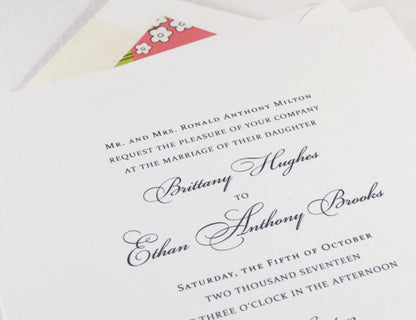 Mr. and Mrs. Ronald Anthony Milton
request the pleasure of your company
at the marriage of their daughter
Brittany Hughes
to
Ethan Anthony Brooks
Saturday, the Fifth of October
two thousand seventeen
three o'clock in the afternoon